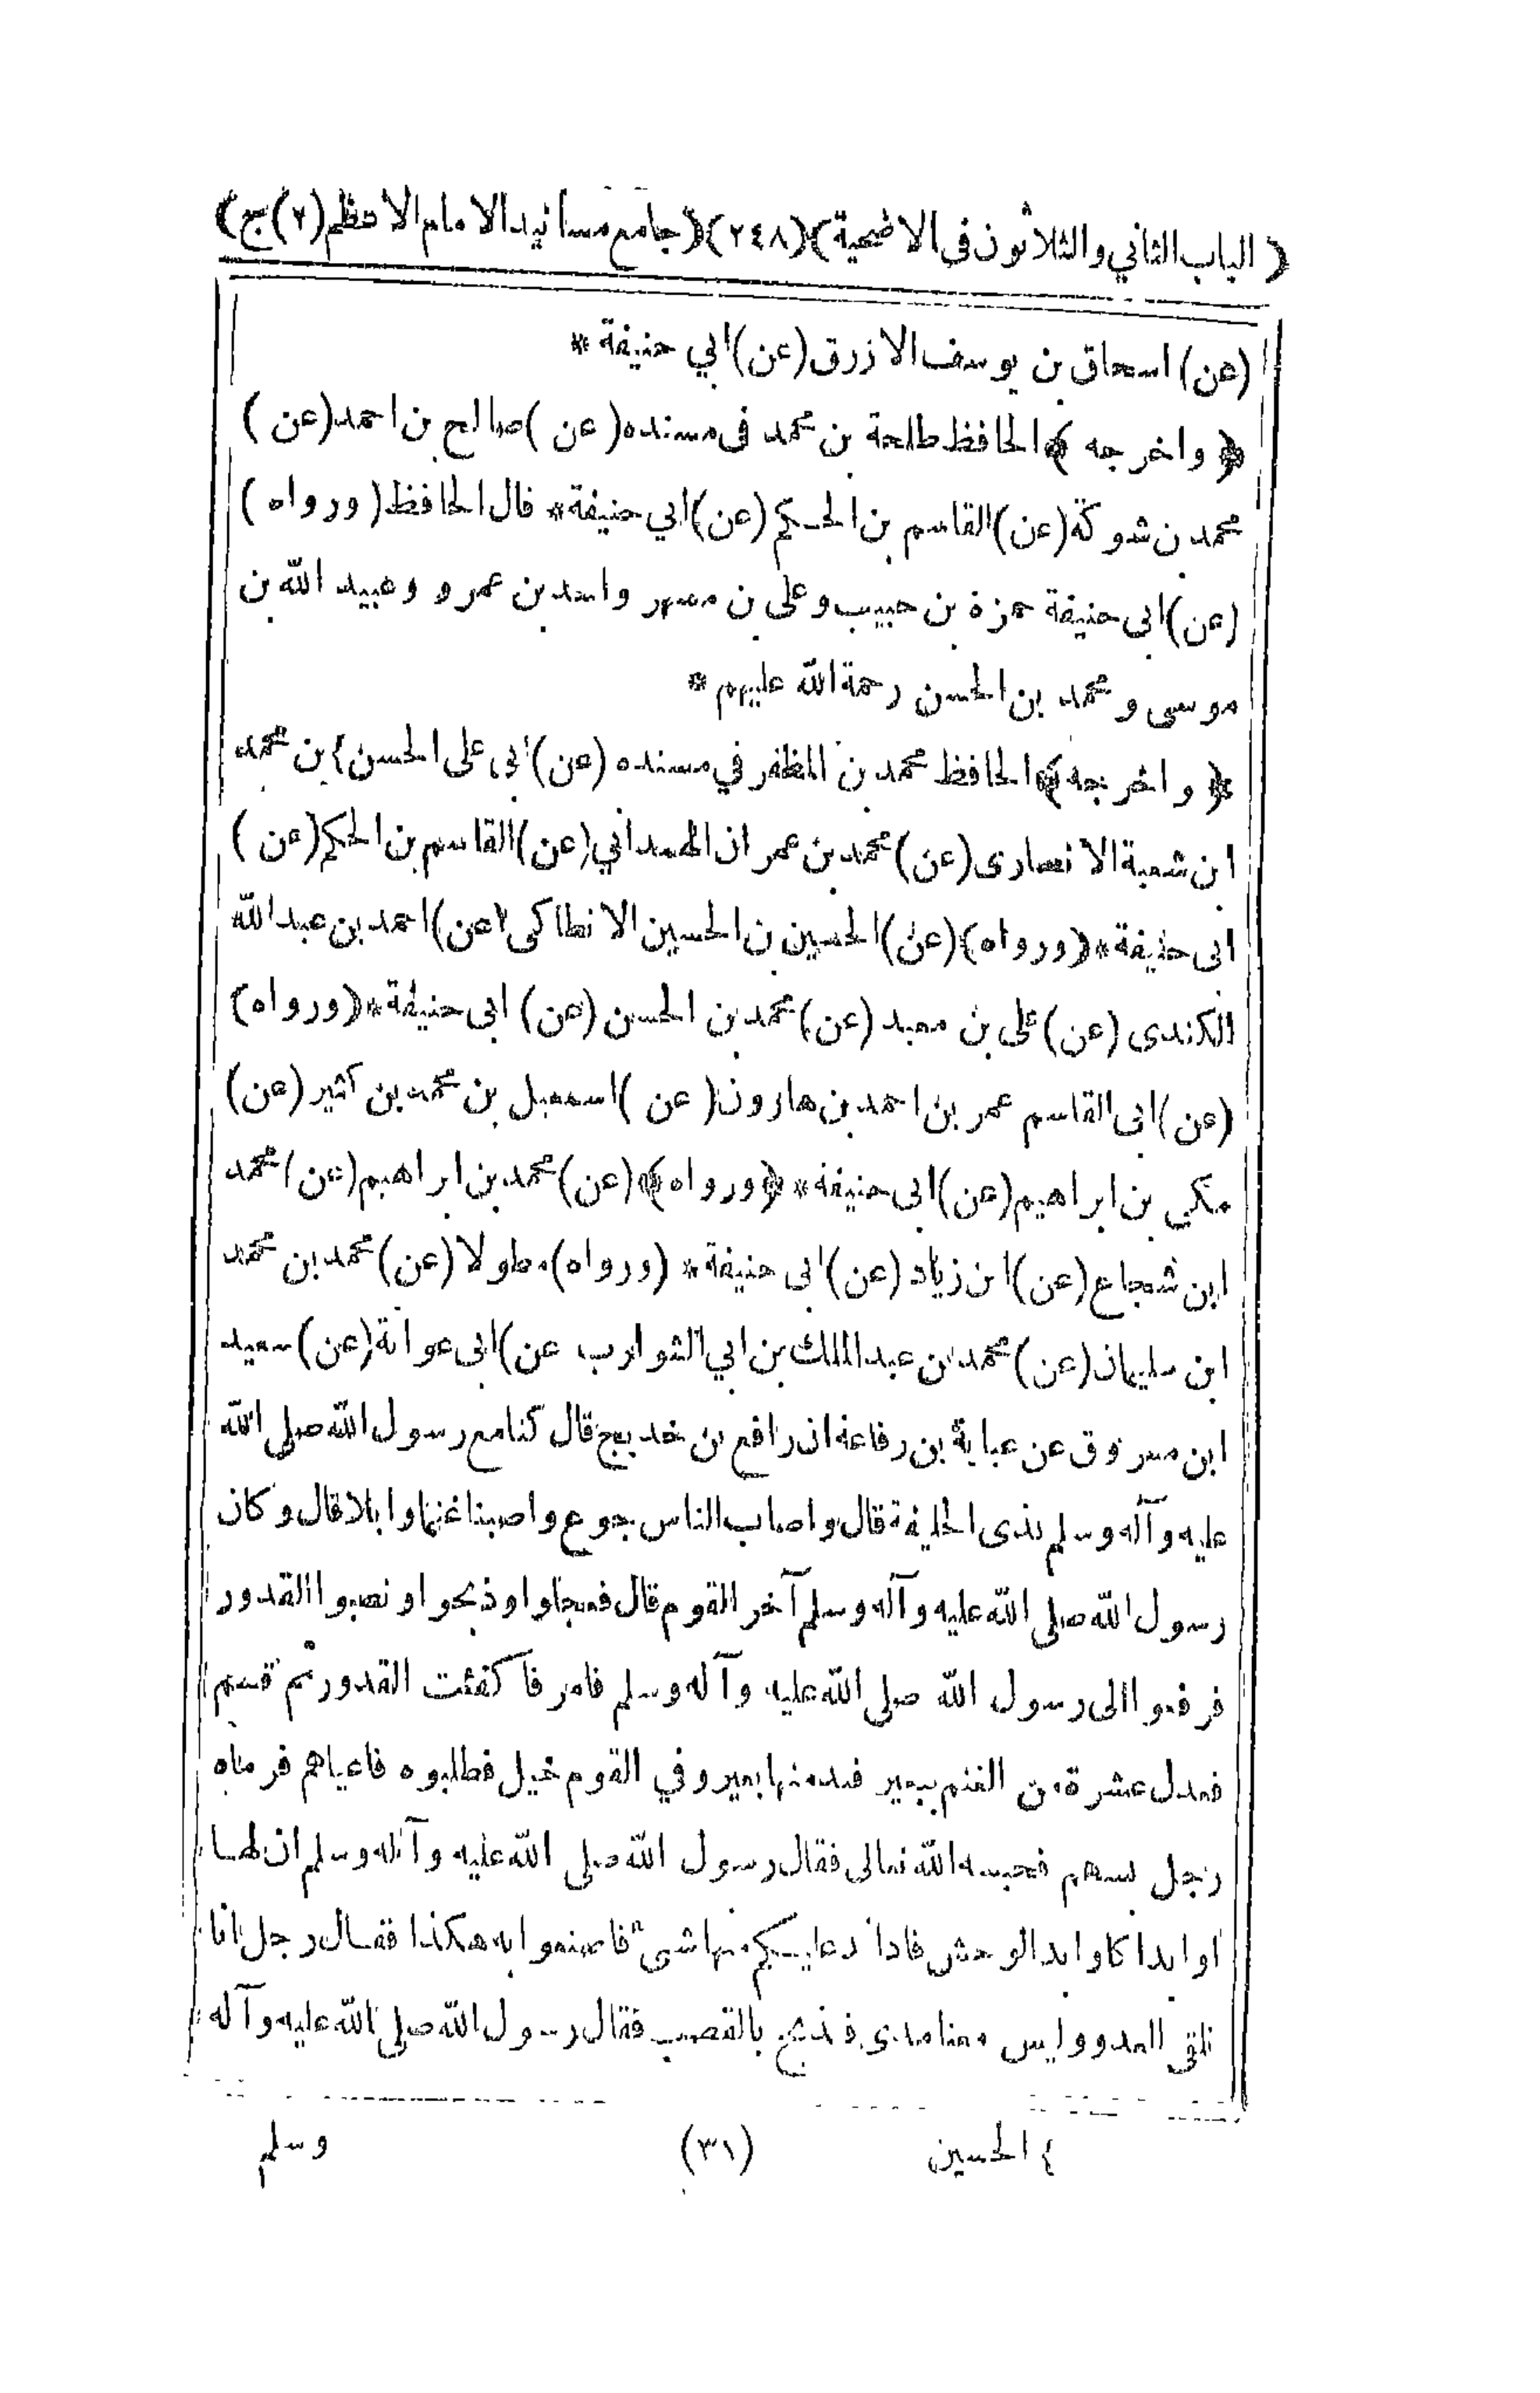 (الباب الثاني والثلاثون في الاضحية) (٢٤٨) (جامع مسانيد الامام الاعظم (٢) ج)
(عن) اسحاق بن يوسف الازرق (عن) ابي حنيفة *
﴿ واخرجه ﴾ الحافظ طلحة بن محمد في مسنده (عن) صالح بن احمد (عن)
محمد بن شوكة (عن) القاسم بن الحكم (عن) ابي حنيفة * قال الحافظ (ورواه)
(عن) ابي حنيفة حمزة بن حبيب وعلي بن مسهر واسد بن عمرو وعبيد الله بن
موسى ومحمد بن الحسن رحمة الله عليهم *
﴿ واخرجه ﴾ الحافظ محمد بن المظفر في مسنده (عن) ابي علي الحسن } بن محمد
ابن شعبة الانصاري (عن) محمد بن عمران الهمداني (عن) القاسم بن الحكم (عن)
ابي حنيفة * (ورواه) (عن) الحسين بن الحسين الانطاكي (عن) احمد بن عبد الله
الكندي (عن) علي بن معبد (عن) محمد بن الحسن (عن) ابي حنيفة * (ورواه)
(عن) ابي القاسم عمر بن احمد بن هارون (عن) اسمعيل بن محمد بن كثير (عن)
مكي بن ابراهيم (عن) ابي حنيفة * ﴿ورواه﴾ (عن) محمد بن ابراهيم (عن) محمد
ابن شجاع (عن) ابن زياد (عن) ابي حنيفة * (ورواه) مطولا (عن) محمد بن محمد
ابن سليمان (عن) محمد بن عبد الملك بن ابي الشوارب عن) ابي عوانة (عن) سعيد
ابن مسروق عن عباية بن رفاعة ان رافع بن خديج قال كنا مع رسول الله صلى الله
عليه وآله وسلم بذي الحليفة قال واصاب الناس جوع واصبنا غنما وابلا قال وكان
رسول الله صلى الله عليه وآله وسلم آخر القوم قال فعجلوا وذبحوا ونصبوا القدور
فرفعوا الى رسول الله صلى الله عليه وآله وسلم فامر فاكفئت القدور ثم قسم
فعدل عشرة من الغنم ببعير فند منها بعير وفي القوم خيل فطلبوه فاعياهم فرماه
رجل بسهم فحبسه الله تعالى فقال رسول الله صلى الله عليه وآله وسلم ان لها
اوابدا كاوابد الوحش فاذا ند عليكم منها شيء فاصنعوا به هكذا فقال رجل انا
نلقى العدو وليس معنا مدى فنذبح بالقصب فقال رسول الله صلى الله عليه وآله
} الحسين (٣١) وسلم